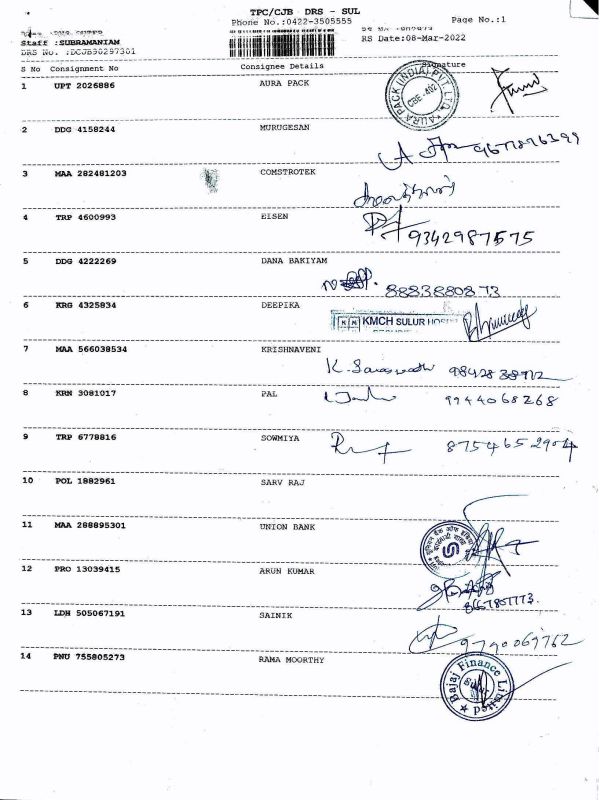 TPC/CJB - DRS - SUL
Phone No.:0422-3505555
Page No.:1
Staff :SUBRAMANIAM
RS Date:08-Mar-2022
DRS No. :DCJB90297301
S No Consignment No Consignee Details Signature
1 UPT 2026886 AURA PACK
AURA PACK (INDIA) PVT. LTD. CBE-402
2 DDG 4158244 MURUGESAN
3 MAA 282481203 COMSTROTEK
4 TRP 4600993 EISEN
9342987575
5 DDG 4222269 DANA BAKIYAM
8883880873
6 KRG 4325834 DEEPIKA
KMCH SULUR HOSP
7 MAA 566038534 KRISHNAVENI
K. Saraswathi
8 KRN 3081017 PAL
9944068268
9 TRP 6778816 SOWMIYA
8754652904
10 POL 1882961 SARV RAJ
11 MAA 288895301 UNION BANK
12 PRO 13039415 ARUN KUMAR
13 LDH 505067191 SAINIK
9790069762
14 PNU 755805273 RAMA MOORTHY
Bajaj Finance Limited